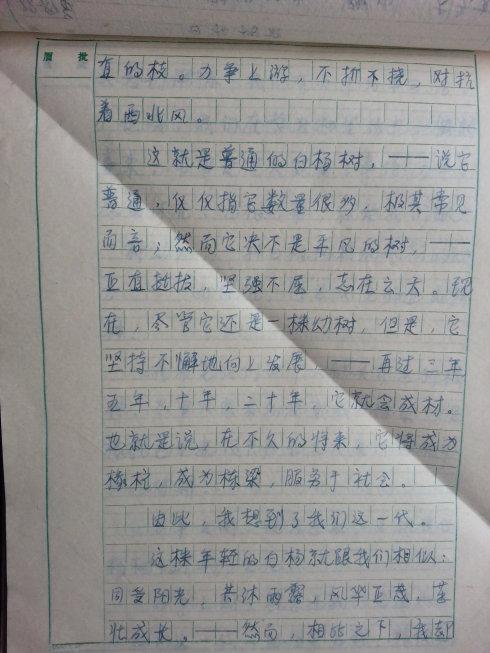 眉批
直的枝。力争上游，不折不挠，对抗
着西北风。
这就是普通的白杨树，——说它
普通，仅仅指它数量很多，极其常见
而言；然而它决不是平凡的树，——
正直挺拔，坚强不屈，志在云天。现
在，尽管它还是一株幼树，但是，它
坚持不懈地向上发展，——再过三年
五年，十年，二十年，它就会成材。
也就是说，在不久的将来，它将成为
椽柱，成为栋梁，服务于社会。
由此，我想到了我们这一代。
这株年轻的白杨就跟我们相似：
同受阳光，共沐雨露，风华正茂，茁
壮成长。——然而，相比之下，我却